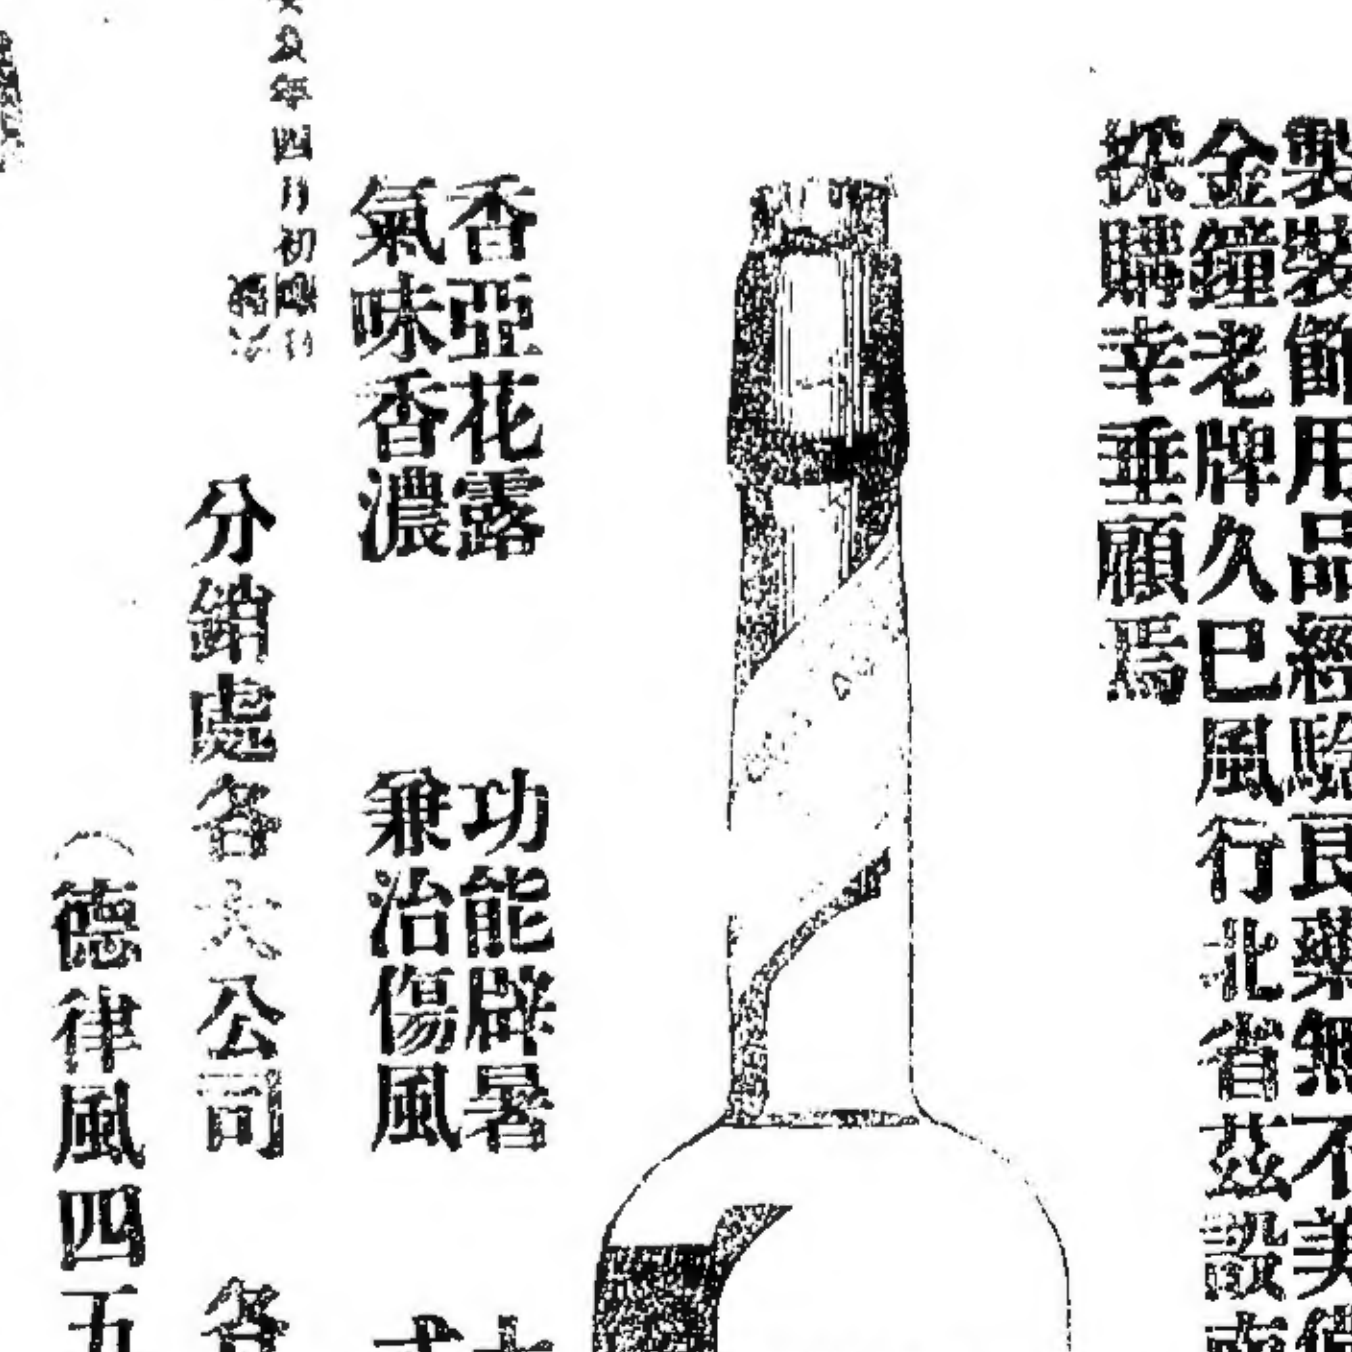 製裝飾用品經驗良藥無不美備
金鐘老牌久已風行北省茲設
採購幸垂顧焉
香亞花露
氣味香濃
功能辟暑
兼治傷風
年四月初
分銷處各大公司 各
(德律風四五